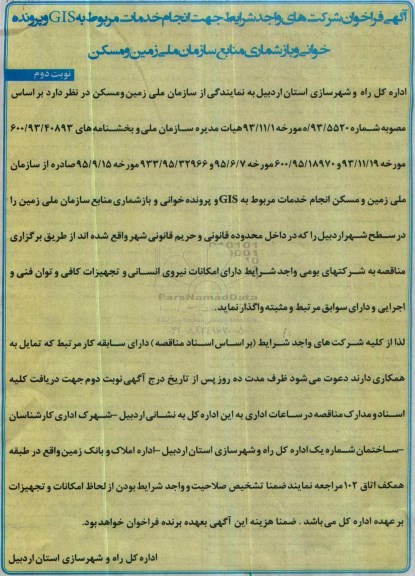 آگهی فراخوان شرکت های واجد شرایط جهت انجام خدمات مربوط به GIS و پرونده
خوانی و بازشماری منابع سازمان ملی زمین و مسکن
نوبت دوم
اداره کل راه و شهرسازی استان اردبیل به نمایندگی از سازمان ملی زمین ومسکن در نظر دارد بر اساس
مصوبه شماره ۹۳/۵۵۲۰/ه مورخه ۹۳/۱۱/۱ هیات مدیره سازمان ملی و بخشنامه های ۶۰۰/۹۳/۴۰۸۹۳
مورخه ۹۳/۱۱/۱۹ و ۶۰۰/۹۵/۱۸۹۷۰ مورخه ۹۵/۶/۷ و ۹۳۳/۹۵/۳۲۹۶۶ مورخه ۹۵/۹/۱۵ صادره از سازمان
ملی زمین و مسکن انجام خدمات مربوط به GIS و پرونده خوانی و بازشماری منابع سازمان ملی زمین را
در سطح شهر اردبیل را که در داخل محدوده قانونی و حریم قانونی شهر واقع شده اند از طریق برگزاری
مناقصه به شرکتهای بومی واجد شرایط دارای امکانات نیروی انسانی و تجهیزات کافی و توان فنی و
اجرایی و دارای سوابق مرتبط و مثبته واگذار نماید.
لذا از کلیه شرکت های واجد شرایط (بر اساس اسناد مناقصه) دارای سابقه کار مرتبط که تمایل به
همکاری دارند دعوت می شود ظرف مدت ده روز پس از تاریخ درج آگهی نوبت دوم جهت دریافت کلیه
اسناد و مدارک مناقصه در ساعات اداری به این اداره کل به نشانی اردبیل – شهرک اداری کارشناسان
– ساختمان شماره یک اداره کل راه و شهرسازی استان اردبیل – اداره املاک و بانک زمین واقع در طبقه
همکف اتاق ۱۰۲ مراجعه نمایند ضمنا تشخیص صلاحیت و واجد شرایط بودن از لحاظ امکانات و تجهیزات
بر عهده اداره کل می باشد . ضمنا هزینه این آگهی بعهده برنده فراخوان خواهد بود.
اداره کل راه و شهرسازی استان اردبیل